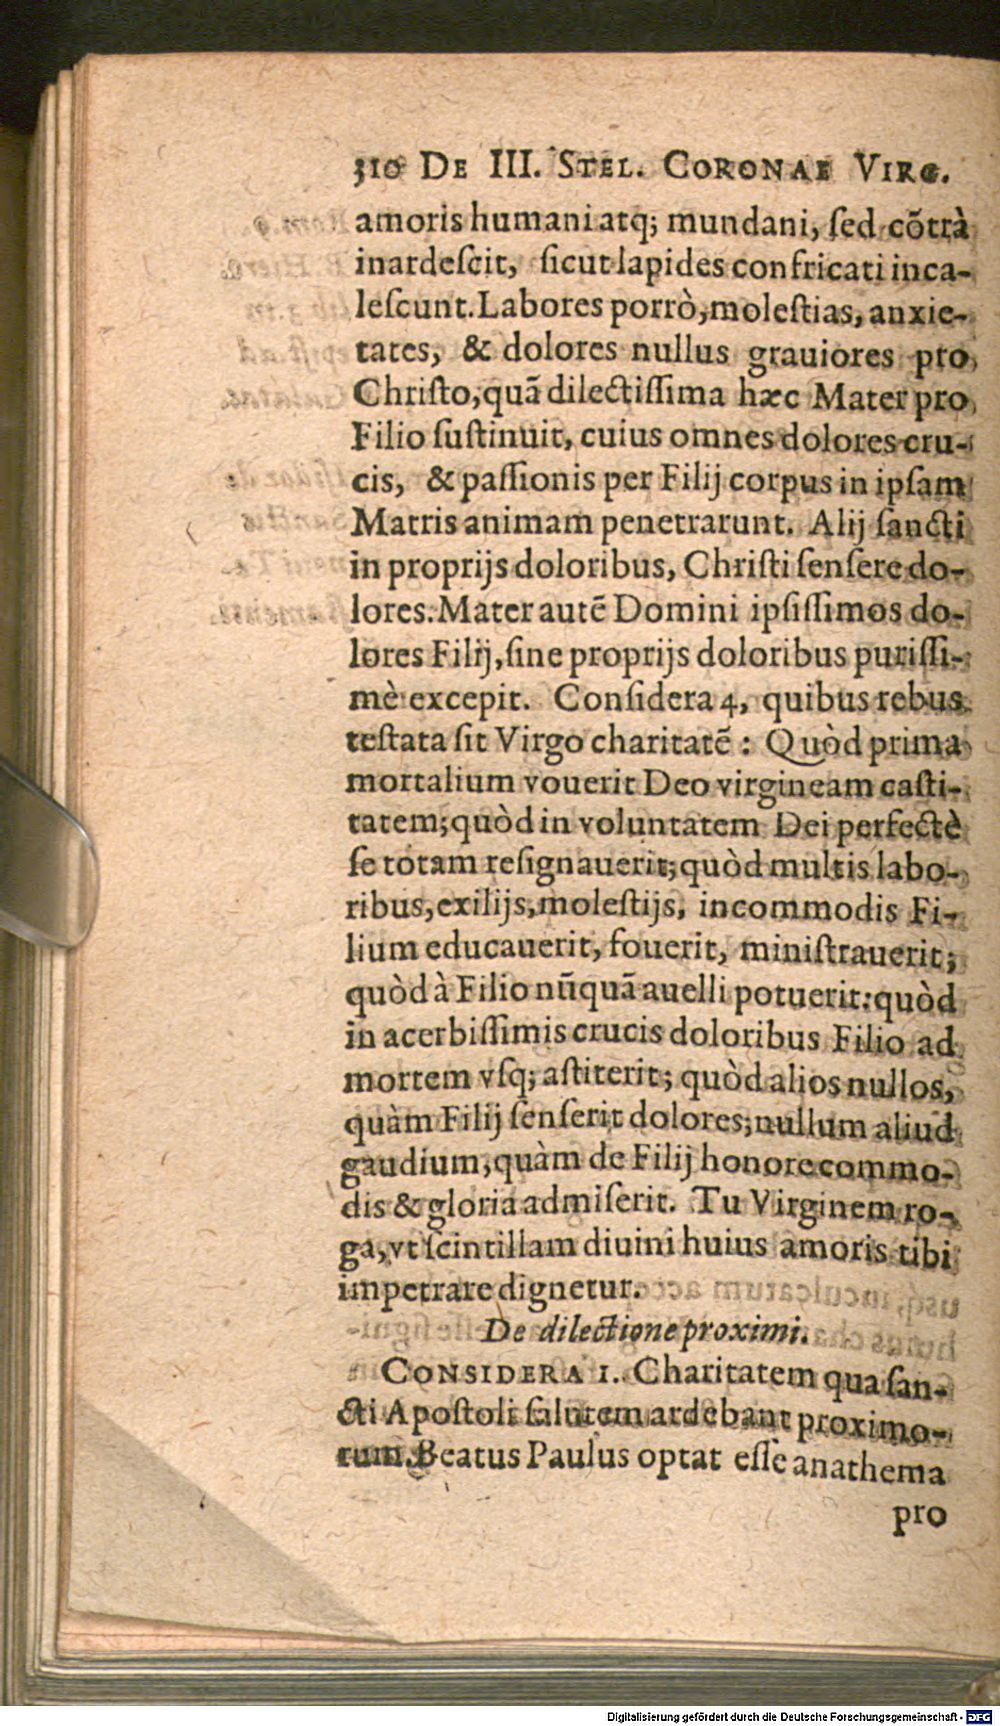 310 De III. Stel. Coronae Virg.
amoris humani atq; mundani, ſed cõtrà
inardeſcit, ſicut lapides confricati inca-
leſcunt. Labores porrò, moleſtias, anxie-
tates, & dolores nullus grauiores pro
Chriſto, quã dilectiſſima hæc Mater pro
Filio ſuſtinuit, cuius omnes dolores cru-
cis, & paſſionis per Filij corpus in ipſam
Matris animam penetrarunt. Alij ſancti
in proprijs doloribus, Chriſti ſenſere do-
lores. Mater autẽ Domini ipſiſſimos do-
lores Filij, ſine proprijs doloribus puriſſi-
mè excepit. Conſidera 4, quibus rebus
teſtata ſit Virgo charitatẽ: Quòd prima
mortalium vouerit Deo virgineam caſti-
tatem; quòd in voluntatem Dei perfectè
ſe totam reſignauerit; quòd multis labo-
ribus, exilijs, moleſtijs, incommodis Fi-
lium educauerit, fouerit, miniſtrauerit;
quòd à Filio nũquã auelli potuerit: quòd
in acerbiſſimis crucis doloribus Filio ad
mortem vſq; aſtiterit; quòd alios nullos,
quàm Filij ſenſerit dolores; nullum aliud
gaudium, quàm de Filij honore commo-
dis & gloria admiſerit. Tu Virginem ro-
ga, vt ſcintillam diuini huius amoris tibi
impetrare dignetur.
De dilectione proximi.
Considera 1. Charitatem qua ſan-
cti Apoſtoli ſalutem ardebant proximo-
rum. Beatus Paulus optat eſſe anathema
pro
Digitalisierung gefördert durch die Deutsche Forschungsgemeinschaft - DFG